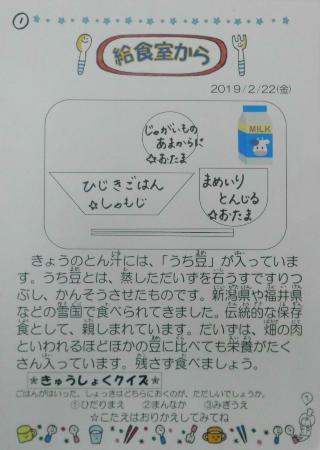 ①
給食室から
2019/2/22(金)
MILK
じゃがいもの
あまからに
☆おたま
ひじきごはん
☆しゃもじ
まめいり
とんじる
☆おたま
きょうのとん汁には、「うち豆」が入っていま
す。うち豆とは、蒸しただいずを石うすですりつ
ぶし、かんそうさせたものです。新潟県や福井県
などの雪国で食べられてきました。伝統的な保存
食として、親しまれています。だいずは、畑の肉
といわれるほどほかの豆に比べても栄養がたく
さん入っています。残さず食べましょう。
★きゅうしょくクイズ★
ごはんがはいった、しょっきはどちらにおくのが、ただしいでしょうか。
①ひだりまえ ②まんなか ③みぎうえ
☆こたえはおりかえしてみてね